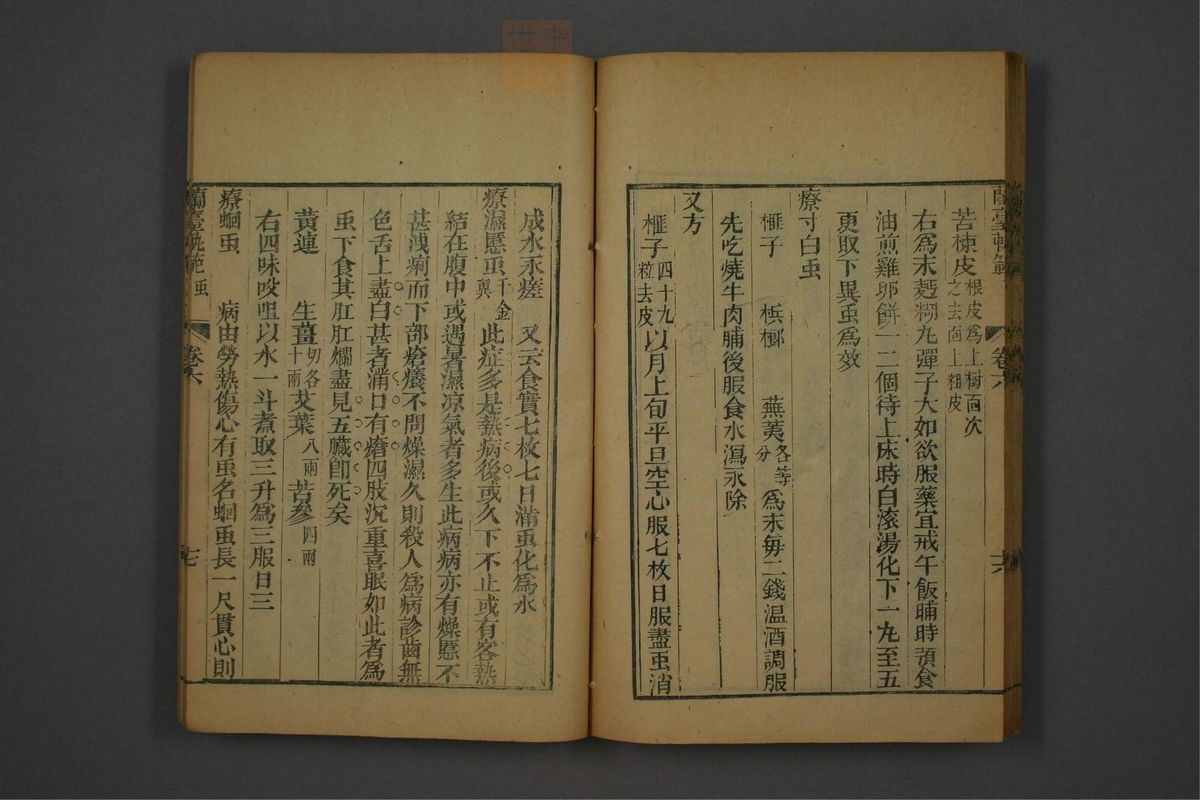 蘭臺軌範 卷六 十六
苦楝皮根皮爲上樹面次之去面上粗皮
右爲末麪糊丸彈子大如欲服藥宜戒午飯晡時預食
油煎雞卵餅一二個待上床時白滚湯化下一丸至五
更取下異虫爲效
療寸白虫
榧子 梹榔 蕪荑各等分 爲末每二錢温酒調服
先吃燒牛肉脯後服食水瀉永除
又方
榧子四十九粒去皮以月上旬平旦空心服七枚日服盡虫消
成水永瘥 又云食實七枚七日滿虫化爲水
療濕䘌虫千金翼 此症多是熱病後或久下不止或有客熱
結在腹中或遇暑濕凉氣者多生此病病亦有燥䘌不
甚洩痢而下部瘡癢不問燥濕久則殺人爲病診齒無
色舌上盡白甚者滿口有瘡四肢沉重喜眠如此者爲
虫下食其肛肛爛盡見五臟卽死矣
黄連 生薑切各十兩艾葉八兩 苦參四兩
右四味㕮咀以水一斗煮取三升爲三服日三
療蛔虫 病由勞熱傷心有虫名蛔虫長一尺貫心則
蘭臺軌範 虫 卷六 七